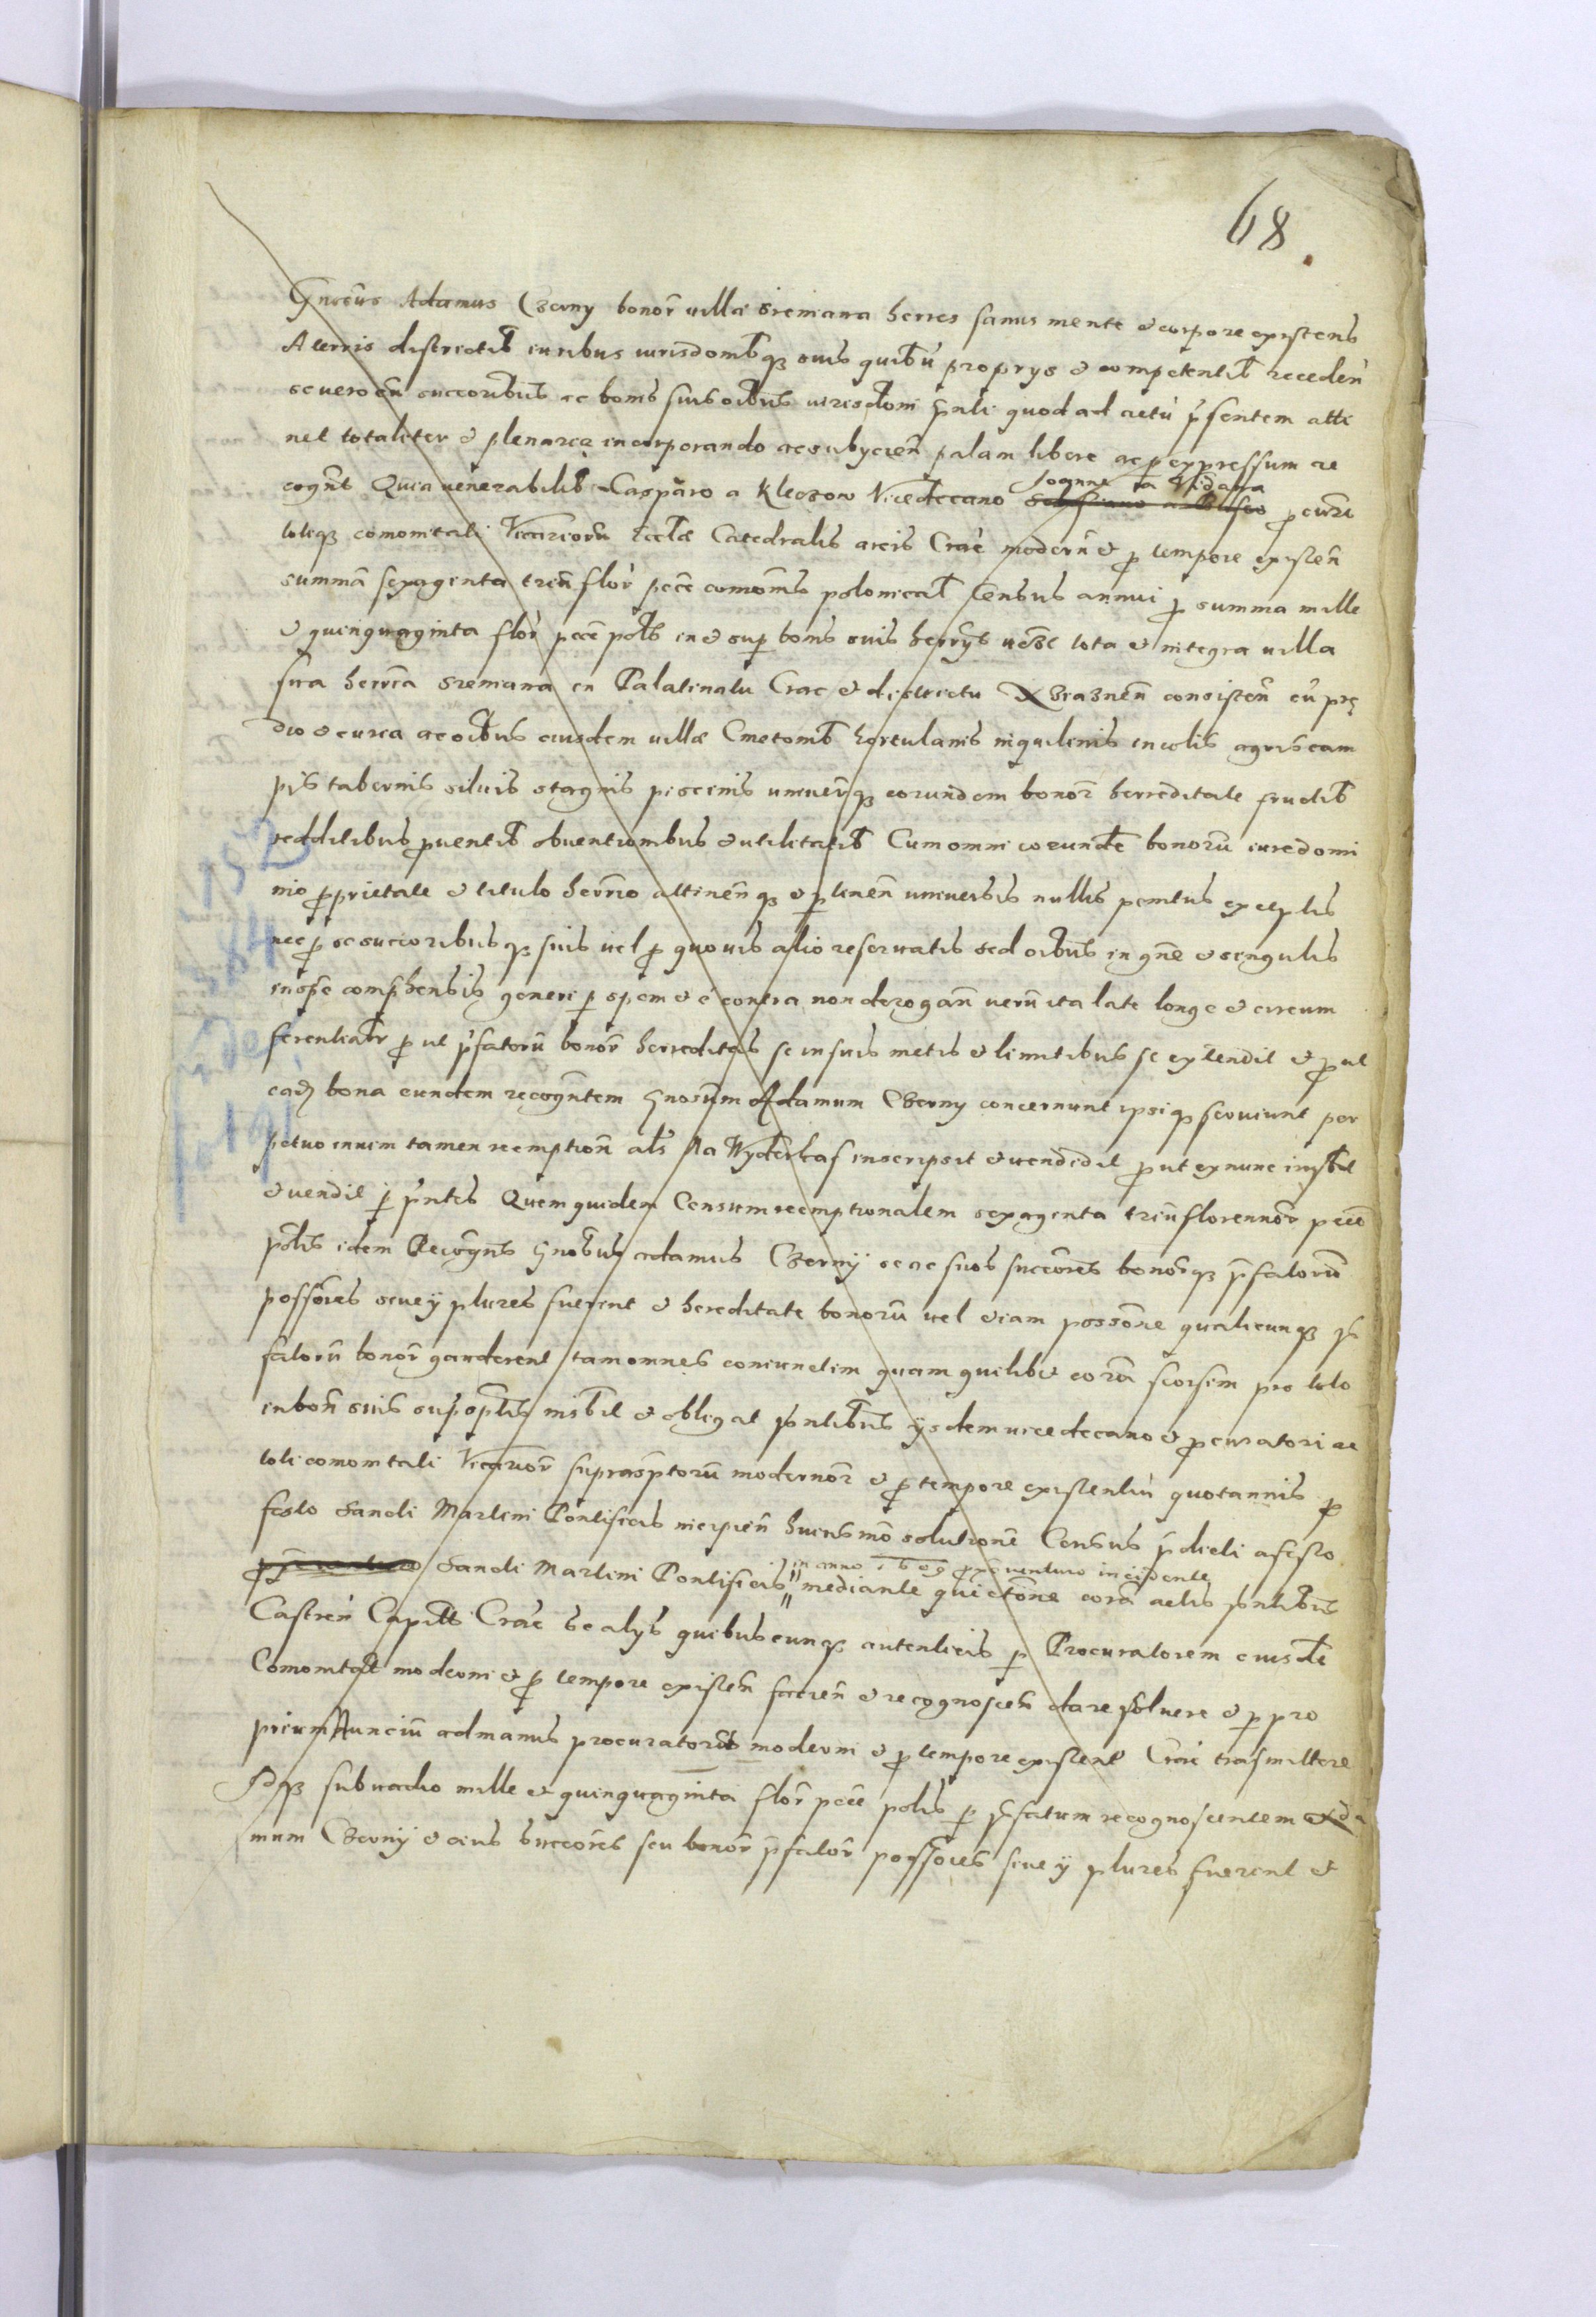 68.
Gnrosus Adamus Czerny bonor villae Sremiawa herres sanus mente et corpore existens
A terris districtib iuribus iurisdomib q suis quibus proprys et competentib receden
se vero cum succoribus ac bonis suis oibus iurisdoni pnti quod ad actu psentem atti
net totaliter et plenarie incorporando ac subycien palam libere ac p expressum re
cognt Quia venerabilib Casparo a Kleczow Vicedecano Joanne a procura
toliq comonitati Vicariorum Eccle Catedralis arcis Crac modern et p tempore existen
summa sexaginta trium flor pece comonis polonicał Census annui p summa mille
et quinquaginta flor pece pols in et sup bonis suis herrys videlt tota et integra villa
sua herria Sremiawa in Palatinatu Crac et districtu Xiaznen consisten cum pre
dio et curia ac oibus eiusdem villae Cmetonib hortulanis inquilinis incolis agris cam
pis tabernis silvis stagnis piscinis univerisq eorundem bonor herreditate fructib
redditibus proventib obventionibus et utilitatib Cum omni eorunde bonorum iure domi
nio proprietate et titulo herrio attinen q et ptinen universis nullis penitus exceptis
nec p se succoribus q suis vel p quovis alio reservatis sed oibus in gne et singulis
in spe comphensis generi p spem et e contra non derogan verum ita late longe et circum
ferentialr p ut pfatorum bonor herreditas se in suis metis et limitibus se extendit et put
eadem bona eundem recogntem Gnosum Adamum Czerny concernunt ipsi q serviunt per
petuo in vim tamen reemption als Na Wyderkaf inscripsit et vendidit prout ex nunc inscbit
et vendit p pntes Quem quidem Censum reemptionalem sexaginta trium florennor pece
pols idem Recognts Gnosus Adamus Czerny se ac suos succores bonorq pfatorum
possores sive y plures fuerint et hereditate bonorum vel etiam possone qualicunq p
fatorum bonor gauderent tam omnes coniunctim quam quilibet eorum seorsim pro toto
in bon suis supscptis insbit et obligat pntibus ysdem vicedecano et procuratori ac
toti comonitati Vicarior suprascptorum modernor et p tempore existentium quotannis p
festo Sancti Martini Pontificis incipien huiusmoi solutione Census pdicti a festo
in anno proxe venturo incidente
Sancti Martini Pontificis mediante quietone cora actis pntibus
Castren Capitl Crac se alys quibuscunq autenticis p Procuratorem eiusde
Comonitat moderni et p tempore existen facien et recognoscen dare solvere et p pro
prium Nuncium ad manus procuratoris moderni et p tempore existent Crac trasmittere
Idq sub vadio mille et quinquaginta flor pece polis p pfatum recognoscentem Ada
mum Czerny et eius succores seu bonor pfator possores sive y plures fuerint et